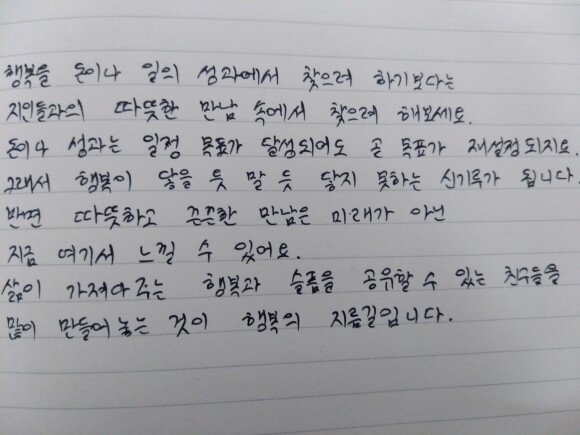 행복을 돈이나 일의 성과에서 찾으려 하기보다는
지인들과의 따뜻한 만남 속에서 찾으려 해보세요.
돈이나 성과는 일정 목표가 달성되어도 곧 목표가 재설정되지요.
그래서 행복이 닿을 듯 말 듯 닿지 못하는 신기루가 됩니다.
반면 따뜻하고 끈끈한 만남은 미래가 아닌
지금 여기서 느낄 수 있어요.
삶이 가져다 주는 행복과 슬픔을 공유할 수 있는 친구들을
많이 만들어 놓는 것이 행복의 지름길입니다.